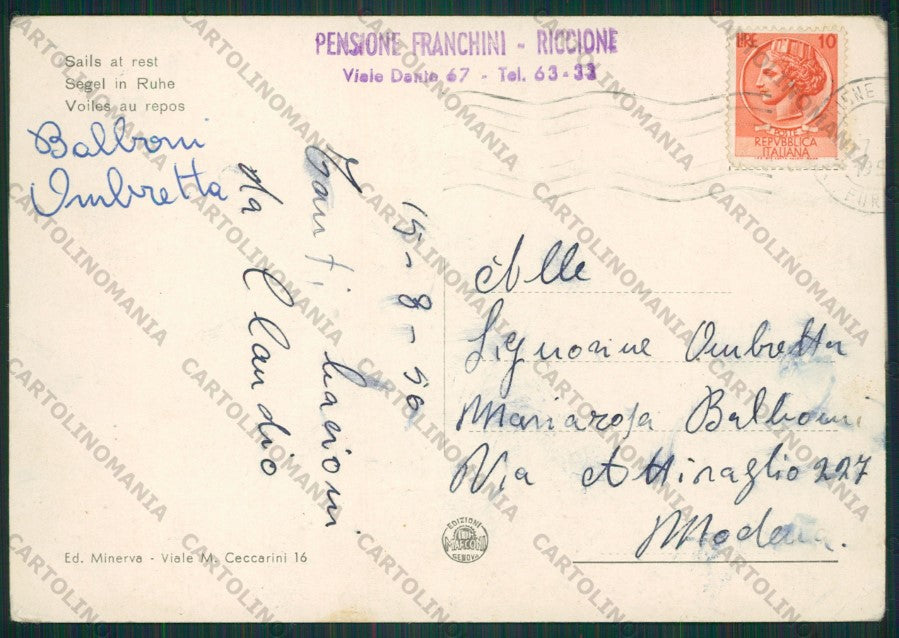 PENSIONE FRANCHINI - RICCIONE
Viale Dante 67 - Tel. 63-33
Sails at rest
Segel in Ruhe
Voiles au repos
Balboni
Ombretta
15-8-56
Tanti bacioni
da Claudio
LIRE 10
POSTE
REPVBBLICA
ITALIANA
Alle
Signorine Ombretta
Mariarosa Balboni
Via Attiraglio 227
Modena.
EDIZIONI
MARCONI
GENOVA
Ed. Minerva - Viale M. Ceccarini 16
CARTOLINOMANIA